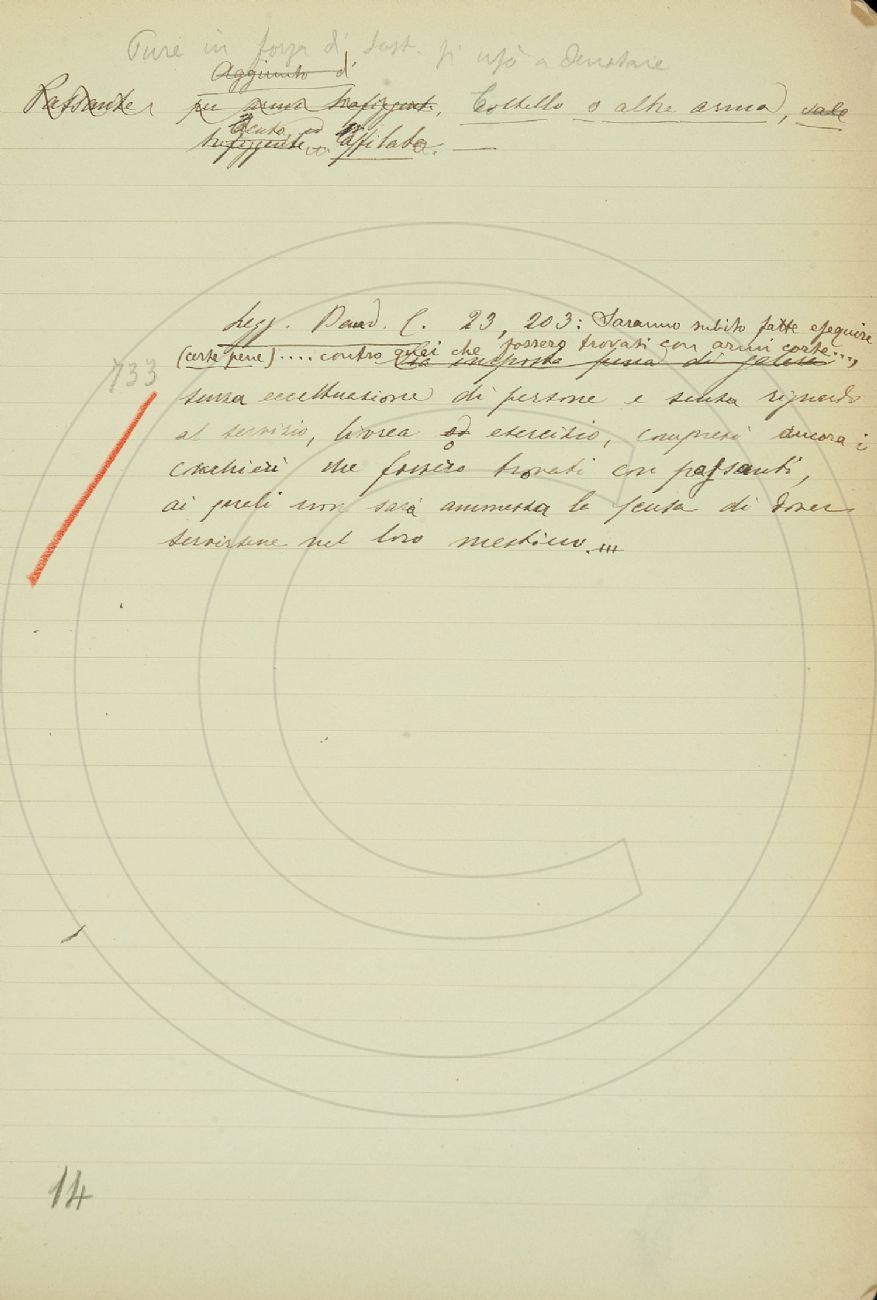 Pure in forza di Sust. si usò a denotare
Aggiunto di
Passante per arma trafiggente, Coltello o altre arma, vale
Acuto, ed
trafiggente Affilata. —
Legg. Band. C. 23, 203: Saranno subito fatte eseguire
(certe pene).... contro quei che fossero trovati con armi corte...,
Sia imposta pena di galera
733
senza eccettuazione di persone e senza riguardo
al servizio, livrea ed esercizio, compresi ancora i
o
cocchieri che fossero trovati con passanti,
ai quali non sarà ammessa la scusa di dover
servirsene nel loro mestiero.
14